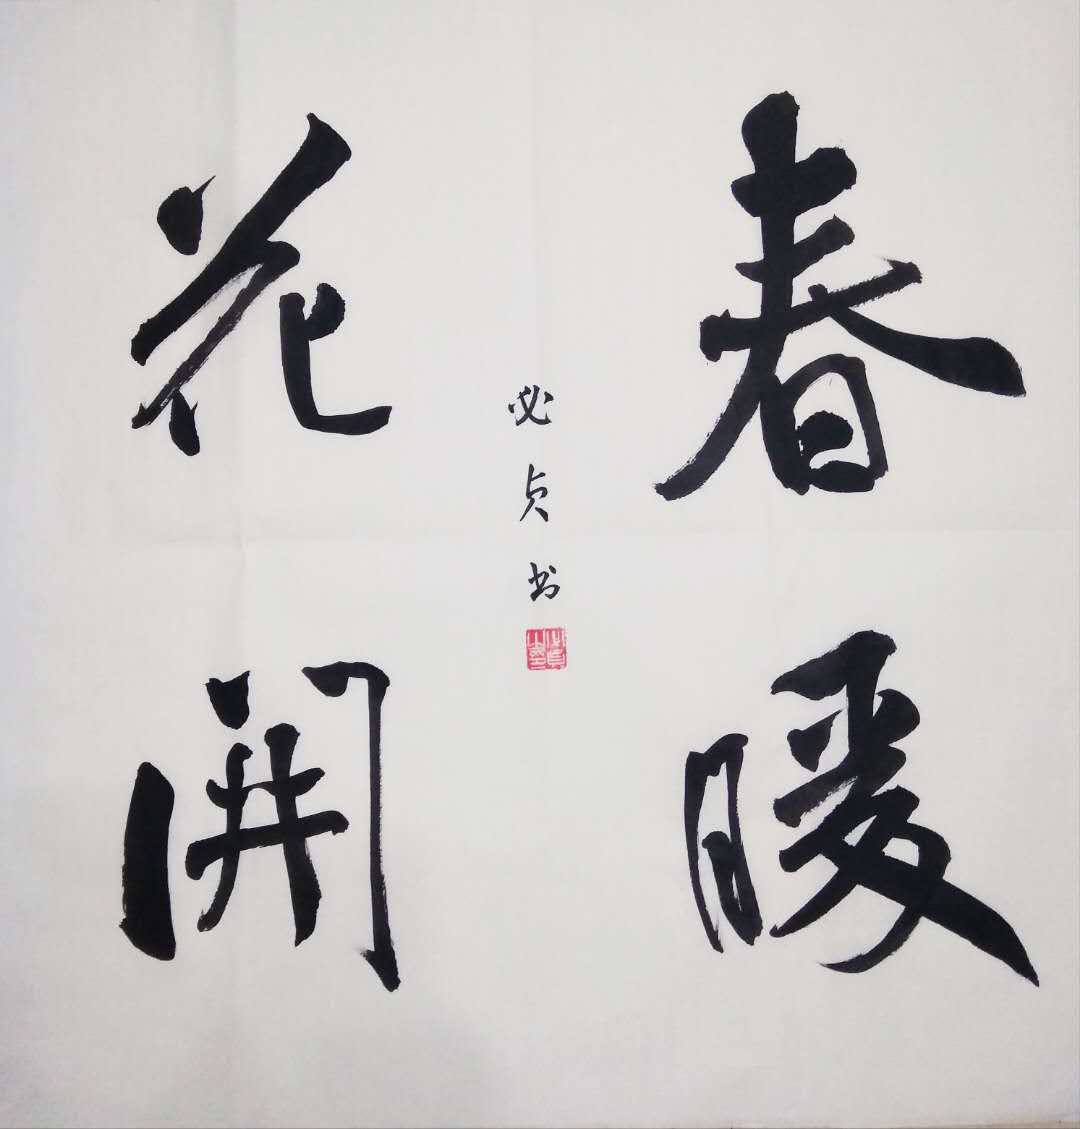 春暖
花開
必贞书